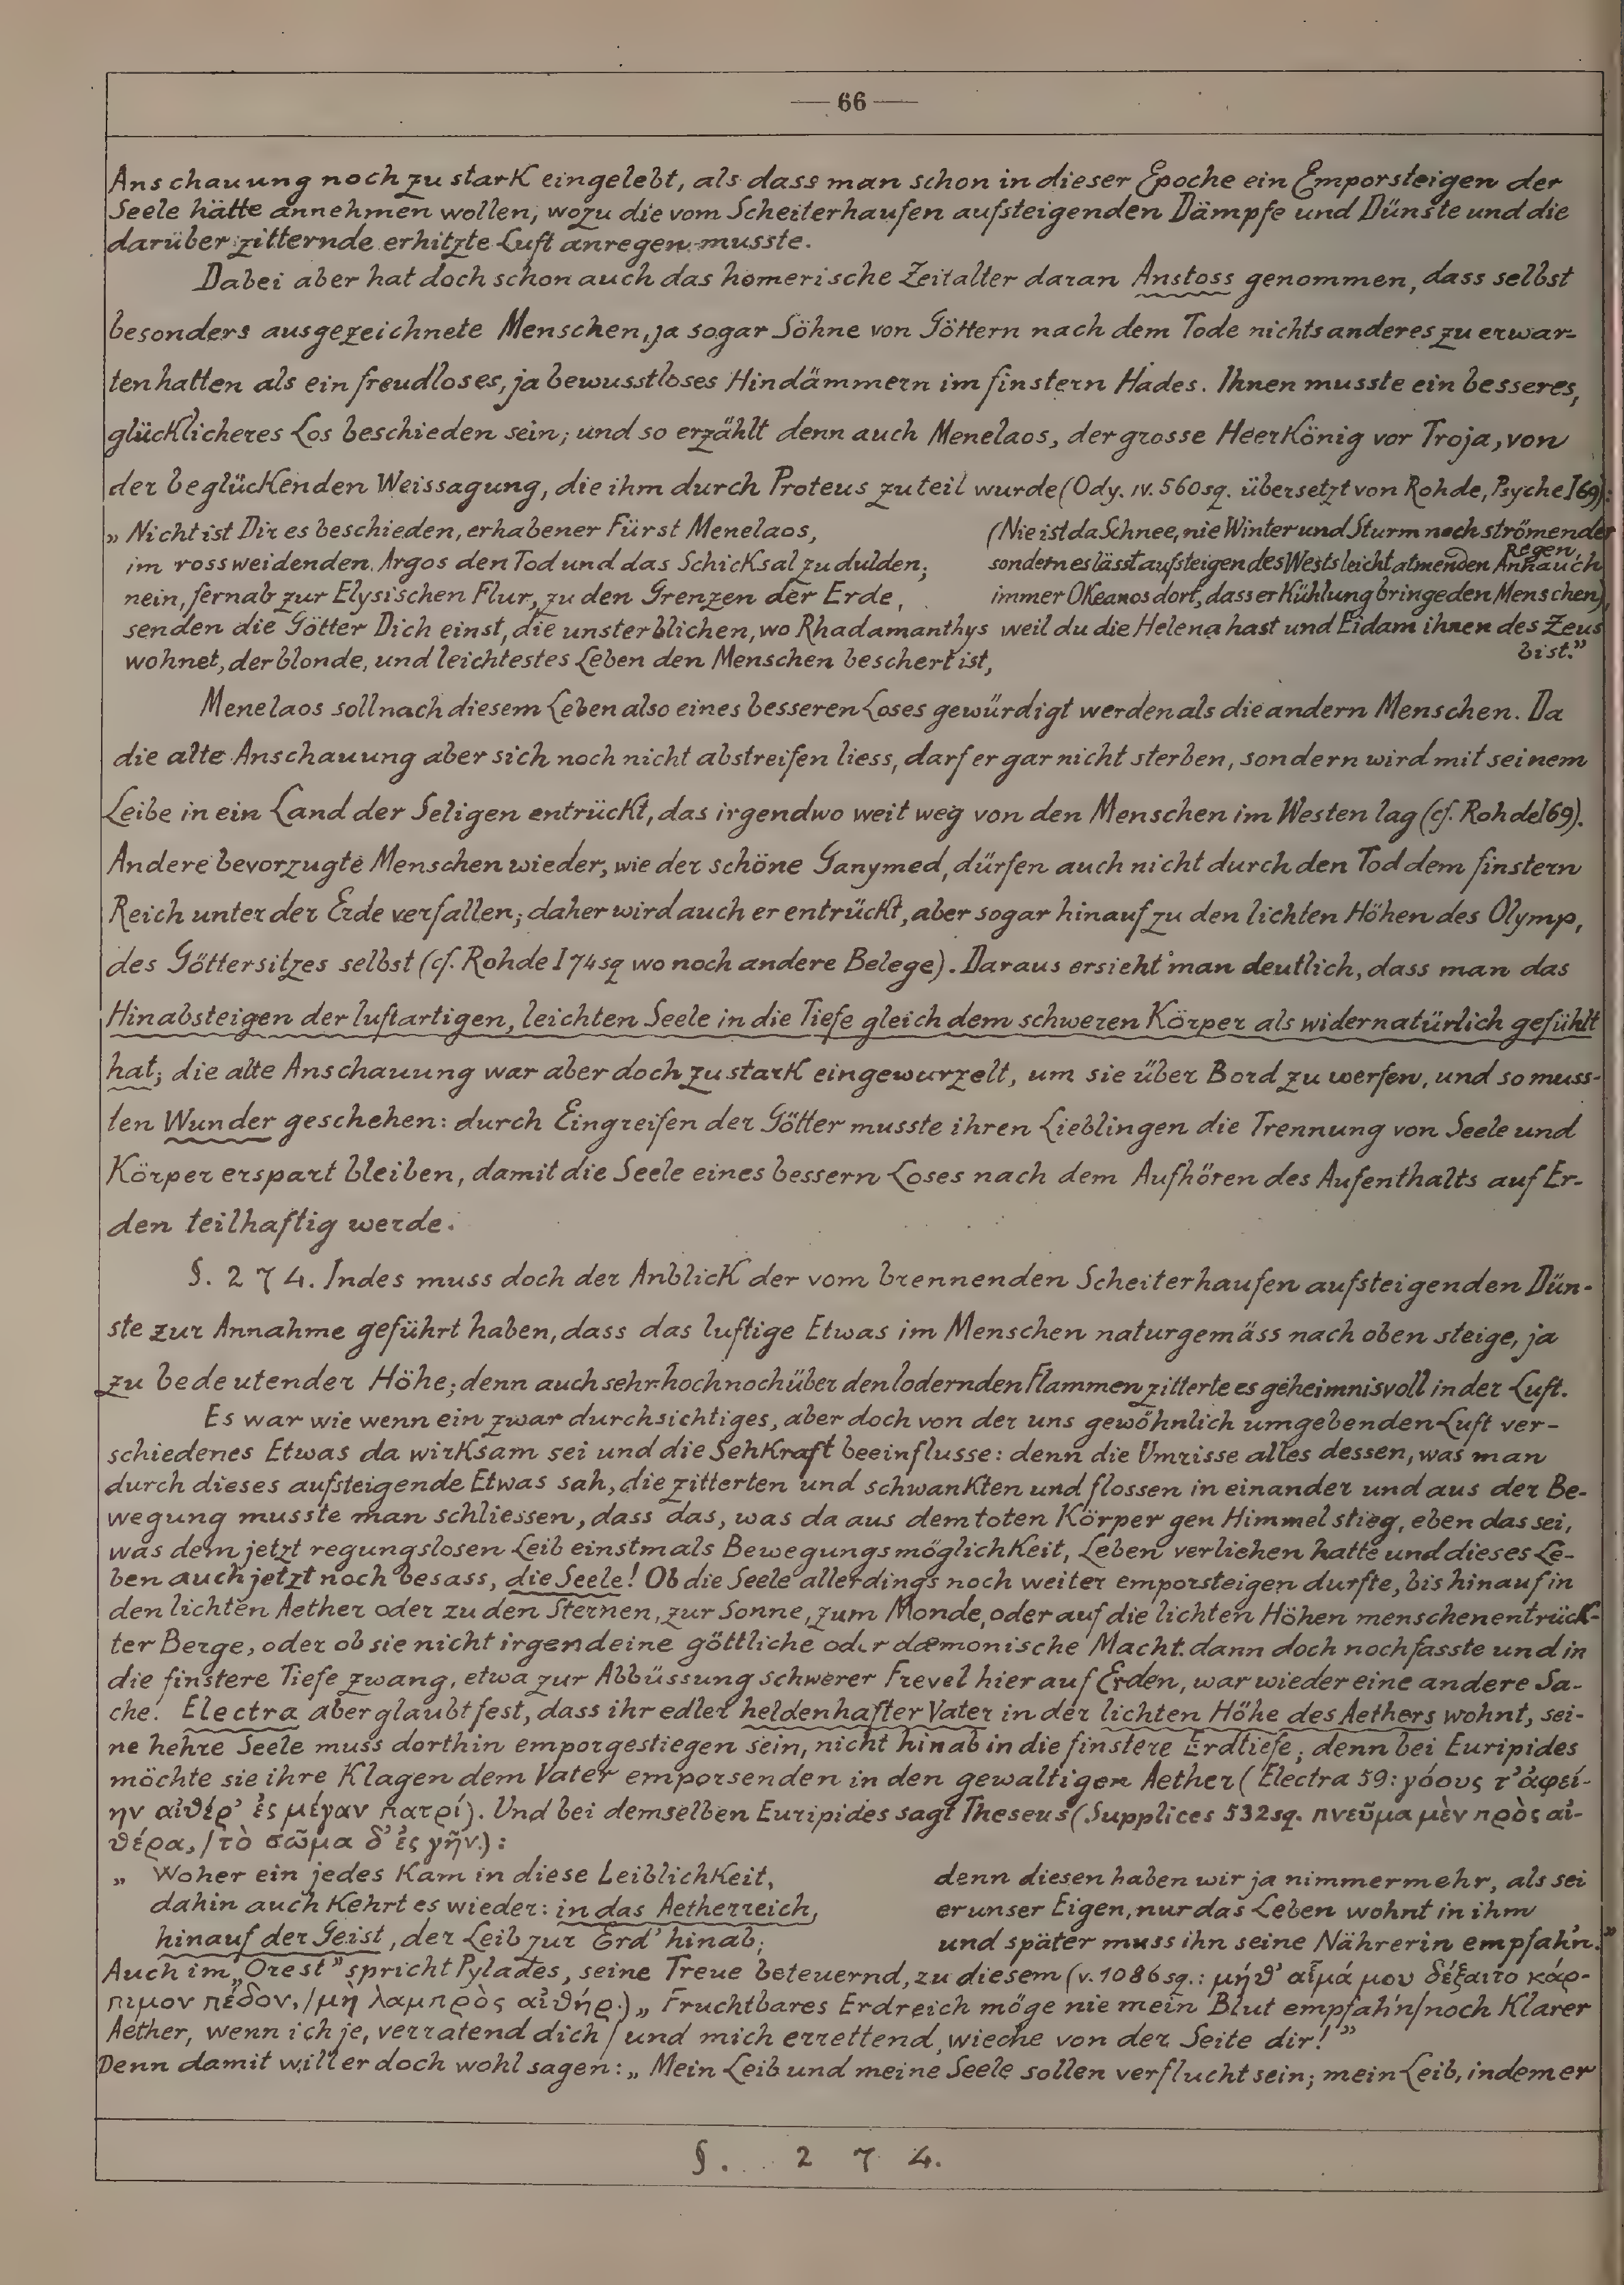 — 66 —
Anschauung noch zu stark eingelebt, als dass man schon in dieser Epoche ein Emporsteigen der
Seele hätte annehmen wollen, wozu die vom Scheiterhaufen aufsteigenden Dämpfe und Dünste und die
darüber zitternde erhitzte Luft anregen musste.
Dabei aber hat doch schon auch das homerische Zeitalter daran Anstoss genommen, dass selbst
besonders ausgezeichnete Menschen, ja sogar Söhne von Göttern nach dem Tode nichts anderes zu erwar-
ten hatten als ein freudloses, ja bewusstloses Hindämmern im finstern Hades. Ihnen musste ein besseres,
glücklicheres Los beschieden sein; und so erzählt denn auch Menelaos, der grosse Heerkönig vor Troja, von
der beglückenden Weissagung, die ihm durch Proteus zuteil wurde (Ody. IV. 560sq. übersetzt von Rohde, Psyche I 69):
„Nicht ist Dir es beschieden, erhabener Fürst Menelaos,
im rossweidenden Argos den Tod und das Schicksal zu dulden;
nein, fernab zur Elysischen Flur, zu den Grenzen der Erde,
senden die Götter Dich einst, die unsterblichen, wo Rhadamanthys
wohnet, der blonde, und leichtestes Leben den Menschen beschert ist,
(Nie ist da Schnee, nie Winter und Sturm noch strömender
Regen,
sondern es lässt aufsteigen des Wests leicht atmenden Anhauch
immer Okeanos dort, dass er Kühlung bringe den Menschen),
weil du die Helena hast und Eidam ihnen des Zeus
bist."
Menelaos soll nach diesem Leben also eines besseren Loses gewürdigt werden als die andern Menschen. Da
die alte Anschauung aber sich noch nicht abstreifen liess, darf er gar nicht sterben, sondern wird mit seinem
Leibe in ein Land der Seligen entrückt, das irgendwo weit weg von den Menschen im Westen lag (cf. Rohde I 69).
Andere bevorzugte Menschen wieder, wie der schöne Ganymed, dürfen auch nicht durch den Tod dem finstern
Reich unter der Erde verfallen; daher wird auch er entrückt, aber sogar hinauf zu den lichten Höhen des Olymp,
des Göttersitzes selbst (cf. Rohde I 74sq wo noch andere Belege). Daraus ersieht man deutlich, dass man das
Hinabsteigen der luftartigen, leichten Seele in die Tiefe gleich dem schweren Körper als widernatürlich gefühlt
hat; die alte Anschauung war aber doch zu stark eingewurzelt, um sie über Bord zu werfen, und so muss-
ten Wunder geschehen: durch Eingreifen der Götter musste ihren Lieblingen die Trennung von Seele und
Körper erspart bleiben, damit die Seele eines bessern Loses nach dem Aufhören des Aufenthalts auf Er-
den teilhaftig werde.
§. 274. Indes muss doch der Anblick der vom brennenden Scheiterhaufen aufsteigenden Dün-
ste zur Annahme geführt haben, dass das luftige Etwas im Menschen naturgemäss nach oben steige, ja
zu bedeutender Höhe; denn auch sehr hoch noch über den lodernden Flammen zitterte es geheimnisvoll in der Luft.
Es war wie wenn ein zwar durchsichtiges, aber doch von der uns gewöhnlich umgebenden Luft ver-
schiedenes Etwas da wirksam sei und die Sehkraft beeinflusse: denn die Umrisse alles dessen, was man
durch dieses aufsteigende Etwas sah, die zitterten und schwankten und flossen in einander und aus der Be-
wegung musste man schliessen, dass das, was da aus dem toten Körper gen Himmel stieg, eben das sei,
was dem jetzt regungslosen Leib einstmals Bewegungsmöglichkeit, Leben verliehen hatte und dieses Le-
ben auch jetzt noch besass, die Seele! Ob die Seele allerdings noch weiter emporsteigen durfte, bis hinauf in
den lichten Aether oder zu den Sternen, zur Sonne, zum Monde, oder auf die lichten Höhen menschenentrück-
ter Berge, oder ob sie nicht irgendeine göttliche oder dæmonische Macht dann doch noch fasste und in
die finstere Tiefe zwang, etwa zur Abbüssung schwerer Frevel hier auf Erden, war wieder eine andere Sa-
che. Electra aber glaubt fest, dass ihr edler heldenhafter Vater in der lichten Höhe des Aethers wohnt, sei-
ne hehre Seele muss dorthin emporgestiegen sein, nicht hinab in die finstere Erdtiefe; denn bei Euripides
möchte sie ihre Klagen dem Vater emporsenden in den gewaltigen Aether (Electra 59: γόους τ' ἀφεί-
ην αἰθέρ' ἐς μέγαν πατρί). Und bei demselben Euripides sagt Theseus (Supplices 532sq. πνεῦμα μὲν πρὸς αἰ-
θέρα, / τὸ σῶμα δ' ἐς γῆν.):
„Woher ein jedes kam in diese Leiblichkeit,
dahin auch kehrt es wieder: in das Aetherreich,
hinauf der Geist, der Leib zur Erd' hinab;
denn diesen haben wir ja nimmermehr, als sei
er unser Eigen, nur das Leben wohnt in ihm
und später muss ihn seine Nährerin empfah'n."
Auch im „Orest" spricht Pylades, seine Treue beteuernd, zu diesem (v. 1086sq.: μήθ' αἷμά μου δέξαιτο κάρ-
πιμον πέδον, / μὴ λαμπρὸς αἰθήρ.) „Fruchtbares Erdreich möge nie mein Blut empfah'n / noch klarer
Aether, wenn ich je, verratend dich / und mich errettend, wieche von der Seite dir!"
Denn damit will er doch wohl sagen: „Mein Leib und meine Seele sollen verflucht sein; mein Leib, indem er
§. 274.